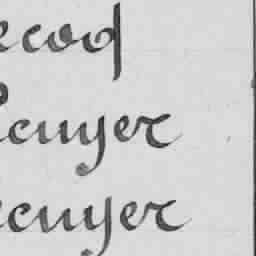 ecoq
ecuyer
ecuyer